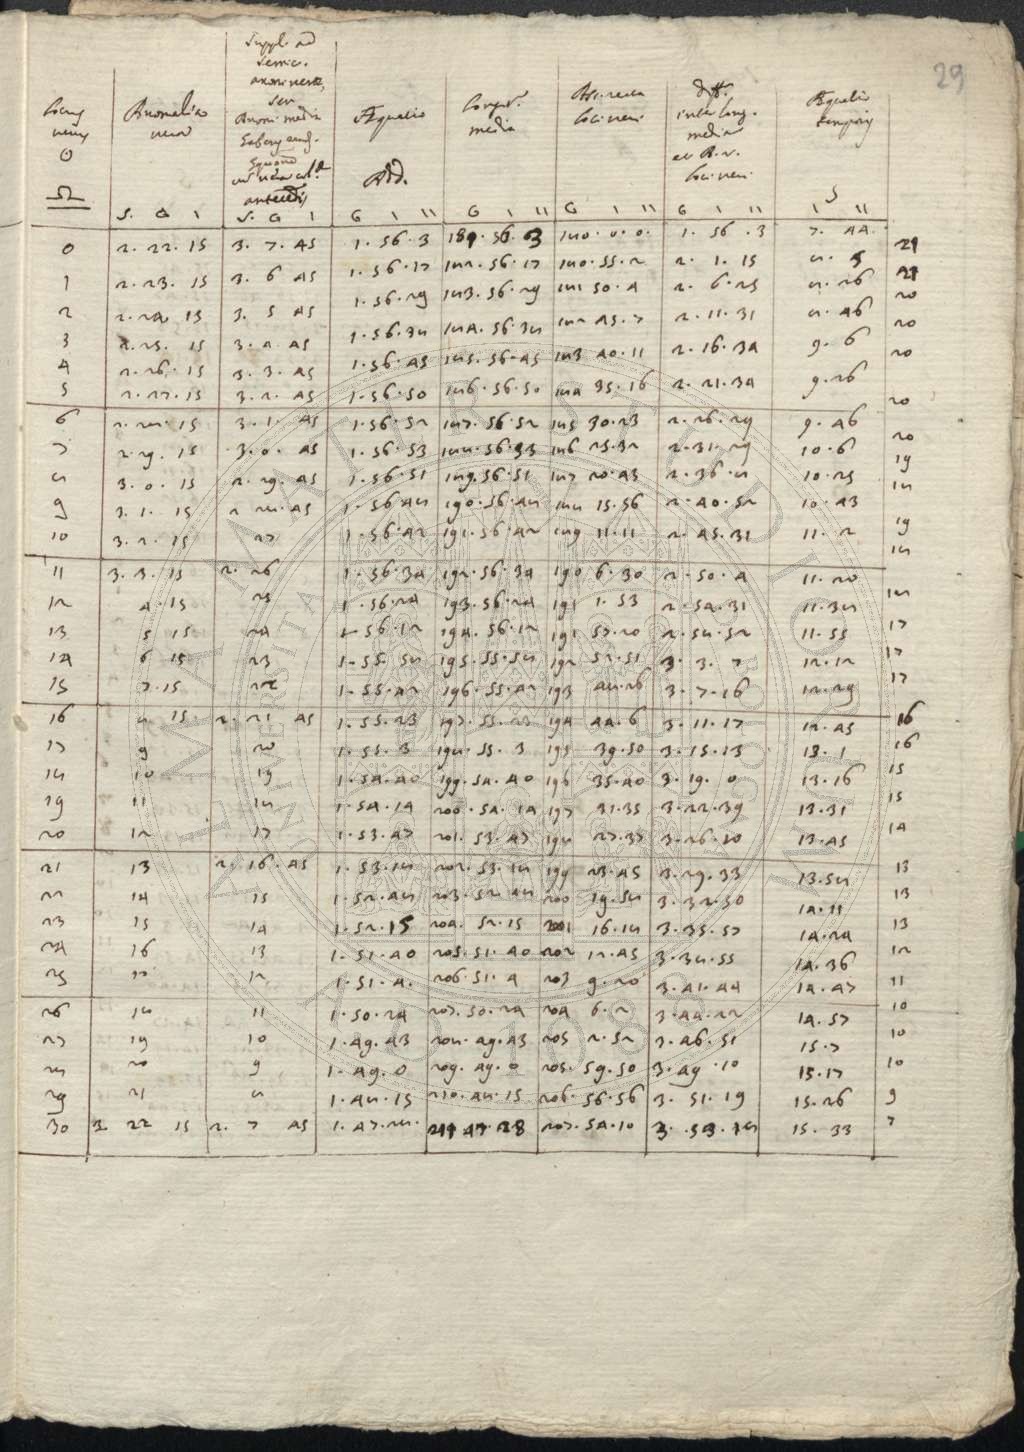 29
Locus verus ☉ ♎ | Anomalia vera | Suppl. ad semic. | Æquatio Add. | Longit. media | Asc. recta loci veri | diff. inter long. media et A. r. loci veri | Æquatio tempor.
S. G I | S. G I | G I II | G I II | G I II | G I II | I II
0 2. 22. 15 3. 7. 45 1. 56. 3 181. 56. 3 180. 0. 0. 1. 56. 3 7. 44. 21
1 2. 23. 15 3. 6 45 1. 56. 17 182. 56. 17 180. 55. 2 2. 1. 15 8. 5 21
2 2. 24 15 3. 5 45 1. 56. 29 183. 56. 29 181 50. 4 2. 6. 25 8. 26 20
3 2. 25. 15 3. 4. 45 1. 56. 38 184. 56. 38 182 45. 7 2. 11. 31 8. 46 20
4 2. 26. 15 3. 3. 45 1. 56. 45 185. 56. 45 183 40. 11 2. 16. 34 9. 6 20
5 2. 27. 15 3. 2. 45 1. 56. 50 186. 56. 50 184 35. 16 2. 21. 34 9. 26 20
6 2. 28. 15 3. 1. 45 1. 56. 52 187. 56. 52 185 30. 23 2. 26. 29 9. 46 20
7 2. 29. 15 3. 0. 45 1. 56. 53 188. 56. 53 186 25. 32 2. 31. 29 10. 6 19
8 3. 0. 15 2. 29. 45 1. 56. 51 189. 56. 51 187 20. 43 2. 36. 8 10. 25 18
9 3. 1. 15 2 28. 45 1. 56 48 190. 56. 48 188 15. 56 2. 40. 52 10. 43 19
10 3. 2. 15 27 1. 56. 42 191. 56. 42 189 11. 11 2. 45. 31 11. 2 18
11 3. 3. 15 2. 26 1. 56. 34 192. 56. 34 190 6. 30 2. 50. 4 11. 20 18
12 4. 15 25 1. 56. 24 193. 56. 24 191 1. 53 2. 54. 31 11. 38 17
13 5 15 24 1. 56. 12 194. 56. 12 191 57. 20 2. 58. 52 11. 55 17
14 6 15 23 1. 55. 58 195. 55. 58 192 52. 51 3. 3. 7 12. 12 17
15 7. 15 22 1. 55. 42 196. 55. 42 193 48. 26 3. 7. 16 12. 29
16 8 15 2. 21 45 1. 55. 23 197. 55. 23 194 44. 6 3. 11. 17 12. 45 16
17 9 20 1. 55. 3 198. 55. 3 195 39. 50 3. 15. 13 13. 1 16
18 10 19 1. 54. 40 199. 54. 40 196 35. 40 3. 19. 0 13. 16 15
19 11 18 1. 54. 14 200. 54. 14 197 31. 35 3. 22. 39 13. 31 15
20 12 17 1. 53. 47 201. 53. 47 198 27. 37 3. 26. 10 13. 45 14
21 13 2. 16. 45 1. 53. 18 202. 53. 18 199 23. 45 3. 29. 33 13. 58 13
22 14 15 1. 52. 48 203. 52. 48 200 19. 58 3. 32. 50 14. 11 13
23 15 14 1. 52. 15 204. 52. 15 201 16. 18 3. 35. 57 14. 24 13
24 16 13 1. 51. 40 205. 51. 40 202 12. 45 3. 38. 55 14. 36 12
25 17 12 1. 51. 4. 206. 51. 4 203 9. 20 3. 41. 44 14. 47 11
26 18 11 1. 50. 24 207. 50. 24 204 6. 2 3. 44. 22 14. 57 10
27 19 10 1. 49. 43 208. 49. 43 205 2. 52 3. 46. 51 15. 7 10
28 20 9 1. 49. 0 209. 49. 0 205. 59. 50 3. 49. 10 15. 17 10
29 21 8 1. 48. 15 210. 48. 15 206. 56. 56 3. 51. 19 15. 26 9
30 3 22 15 2. 7 45 1. 47. 28. 211 47. 28 207. 54. 10 3. 53. 18 15. 33 7